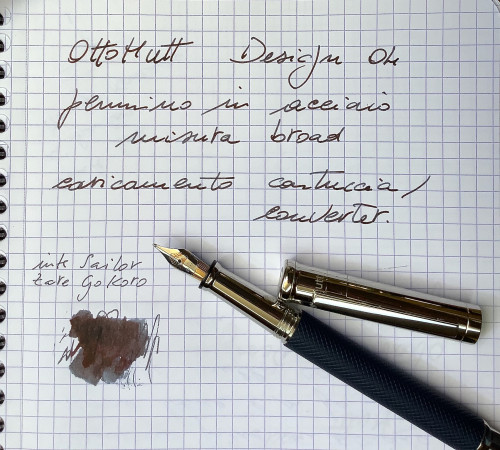 OttoHutt Design 04
pennino in acciaio
misura broad
caricamento cartuccia/
converter.
ink Sailor
Zore Gokoro